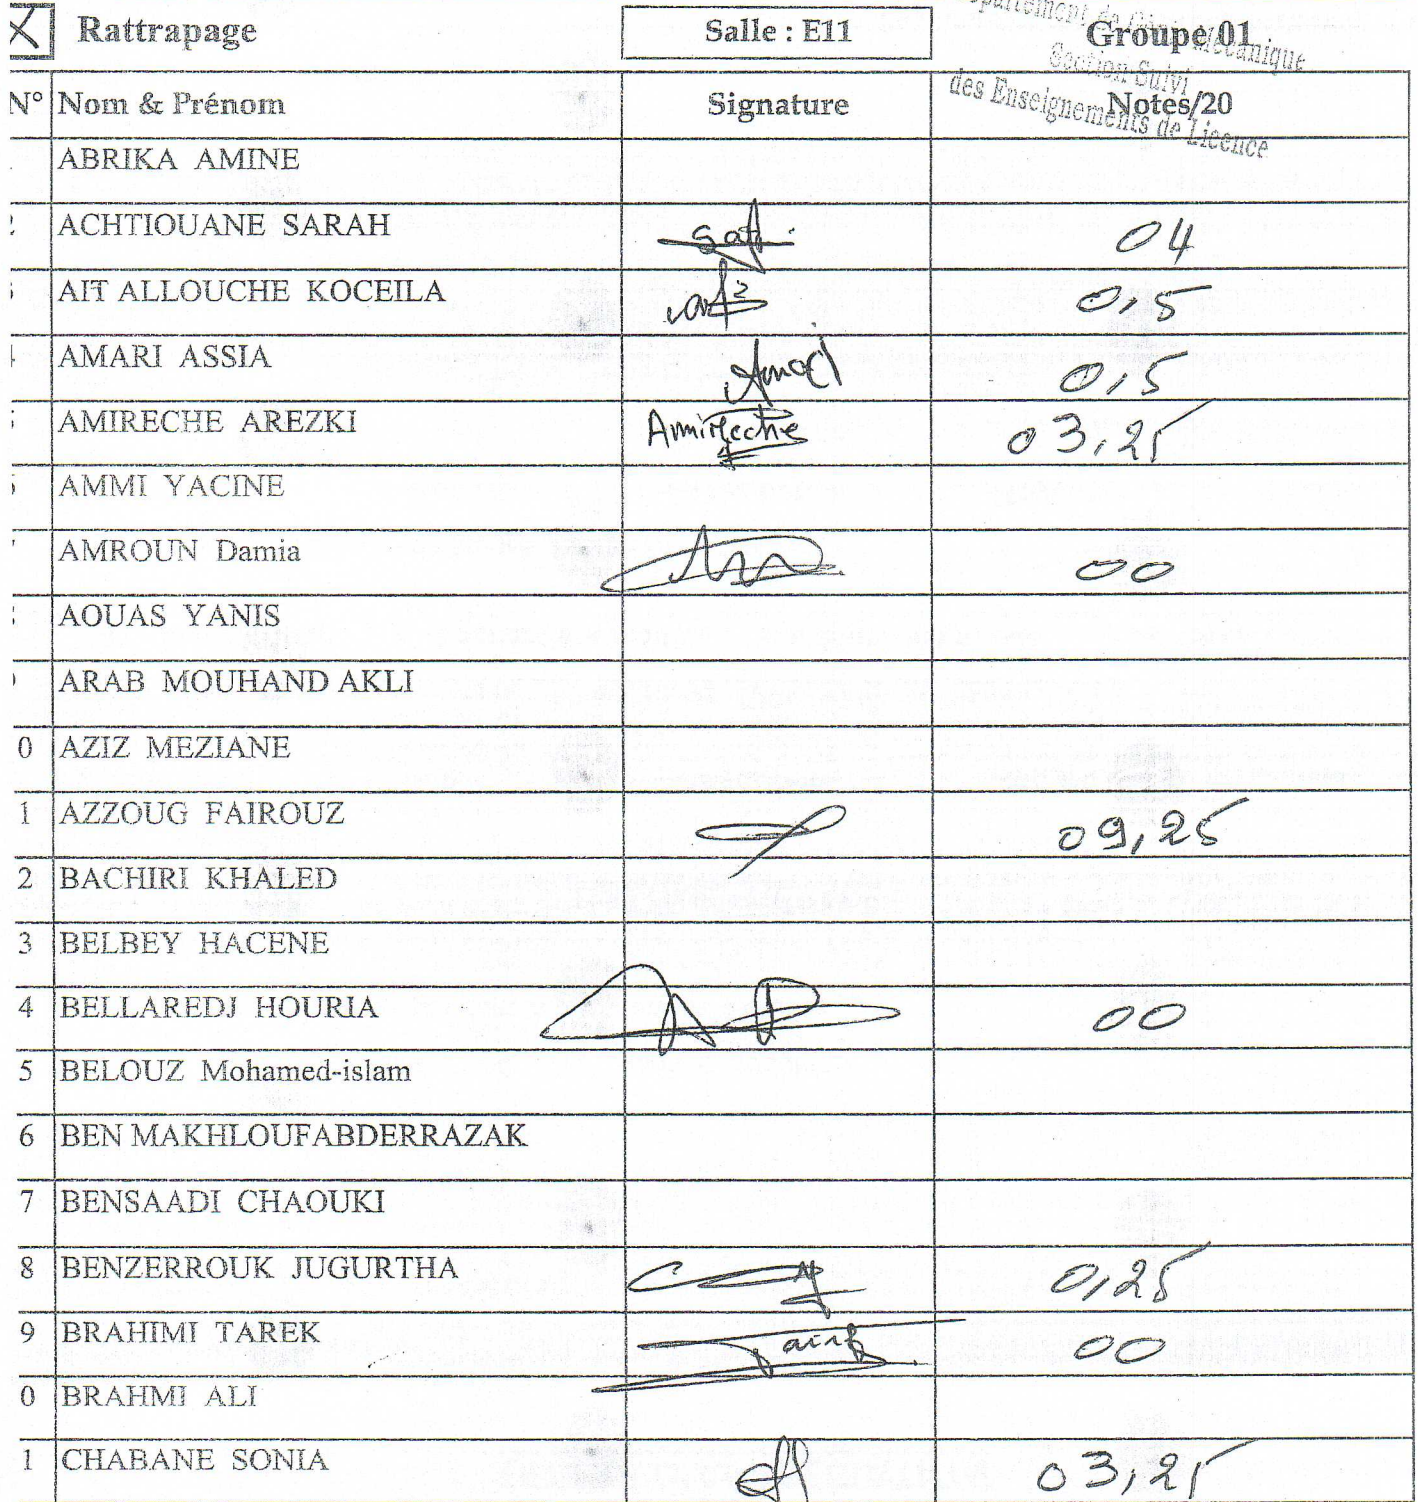 Rattrapage Salle : E11 Groupe 01
Département de Génie Mécanique
Section Suivi
des Enseignements de Licence
N° Nom & Prénom Signature Notes/20
ABRIKA AMINE
ACHTIOUANE SARAH 04
AIT ALLOUCHE KOCEILA 0,5
AMARI ASSIA 0,5
AMIRECHE AREZKI Amireche 03,25
AMMI YACINE
AMROUN Damia 00
AOUAS YANIS
ARAB MOUHAND AKLI
0 AZIZ MEZIANE
1 AZZOUG FAIROUZ 09,25
2 BACHIRI KHALED
3 BELBEY HACENE
4 BELLAREDJ HOURIA 00
5 BELOUZ Mohamed-islam
6 BEN MAKHLOUFABDERRAZAK
7 BENSAADI CHAOUKI
8 BENZERROUK JUGURTHA 0,25
9 BRAHIMI TAREK 00
0 BRAHMI ALI
1 CHABANE SONIA 03,25